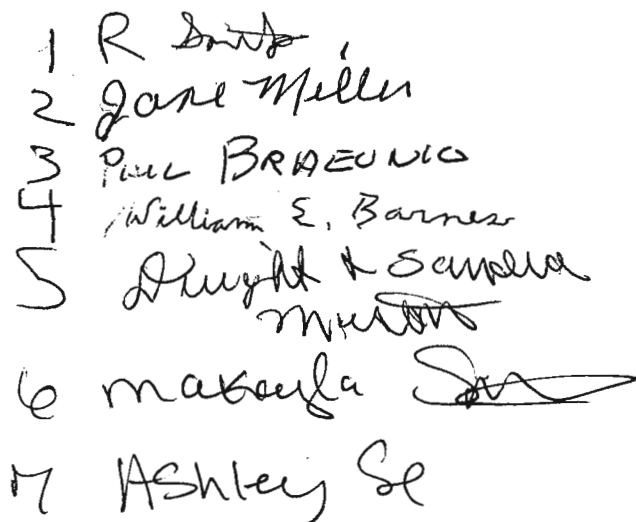 1 R Smith
2 Jane Miller
3 Paul BRAEUNIG
4 William E. Barnes
5 Dwight & Sandra
6 Makayla
7 Ashley Se